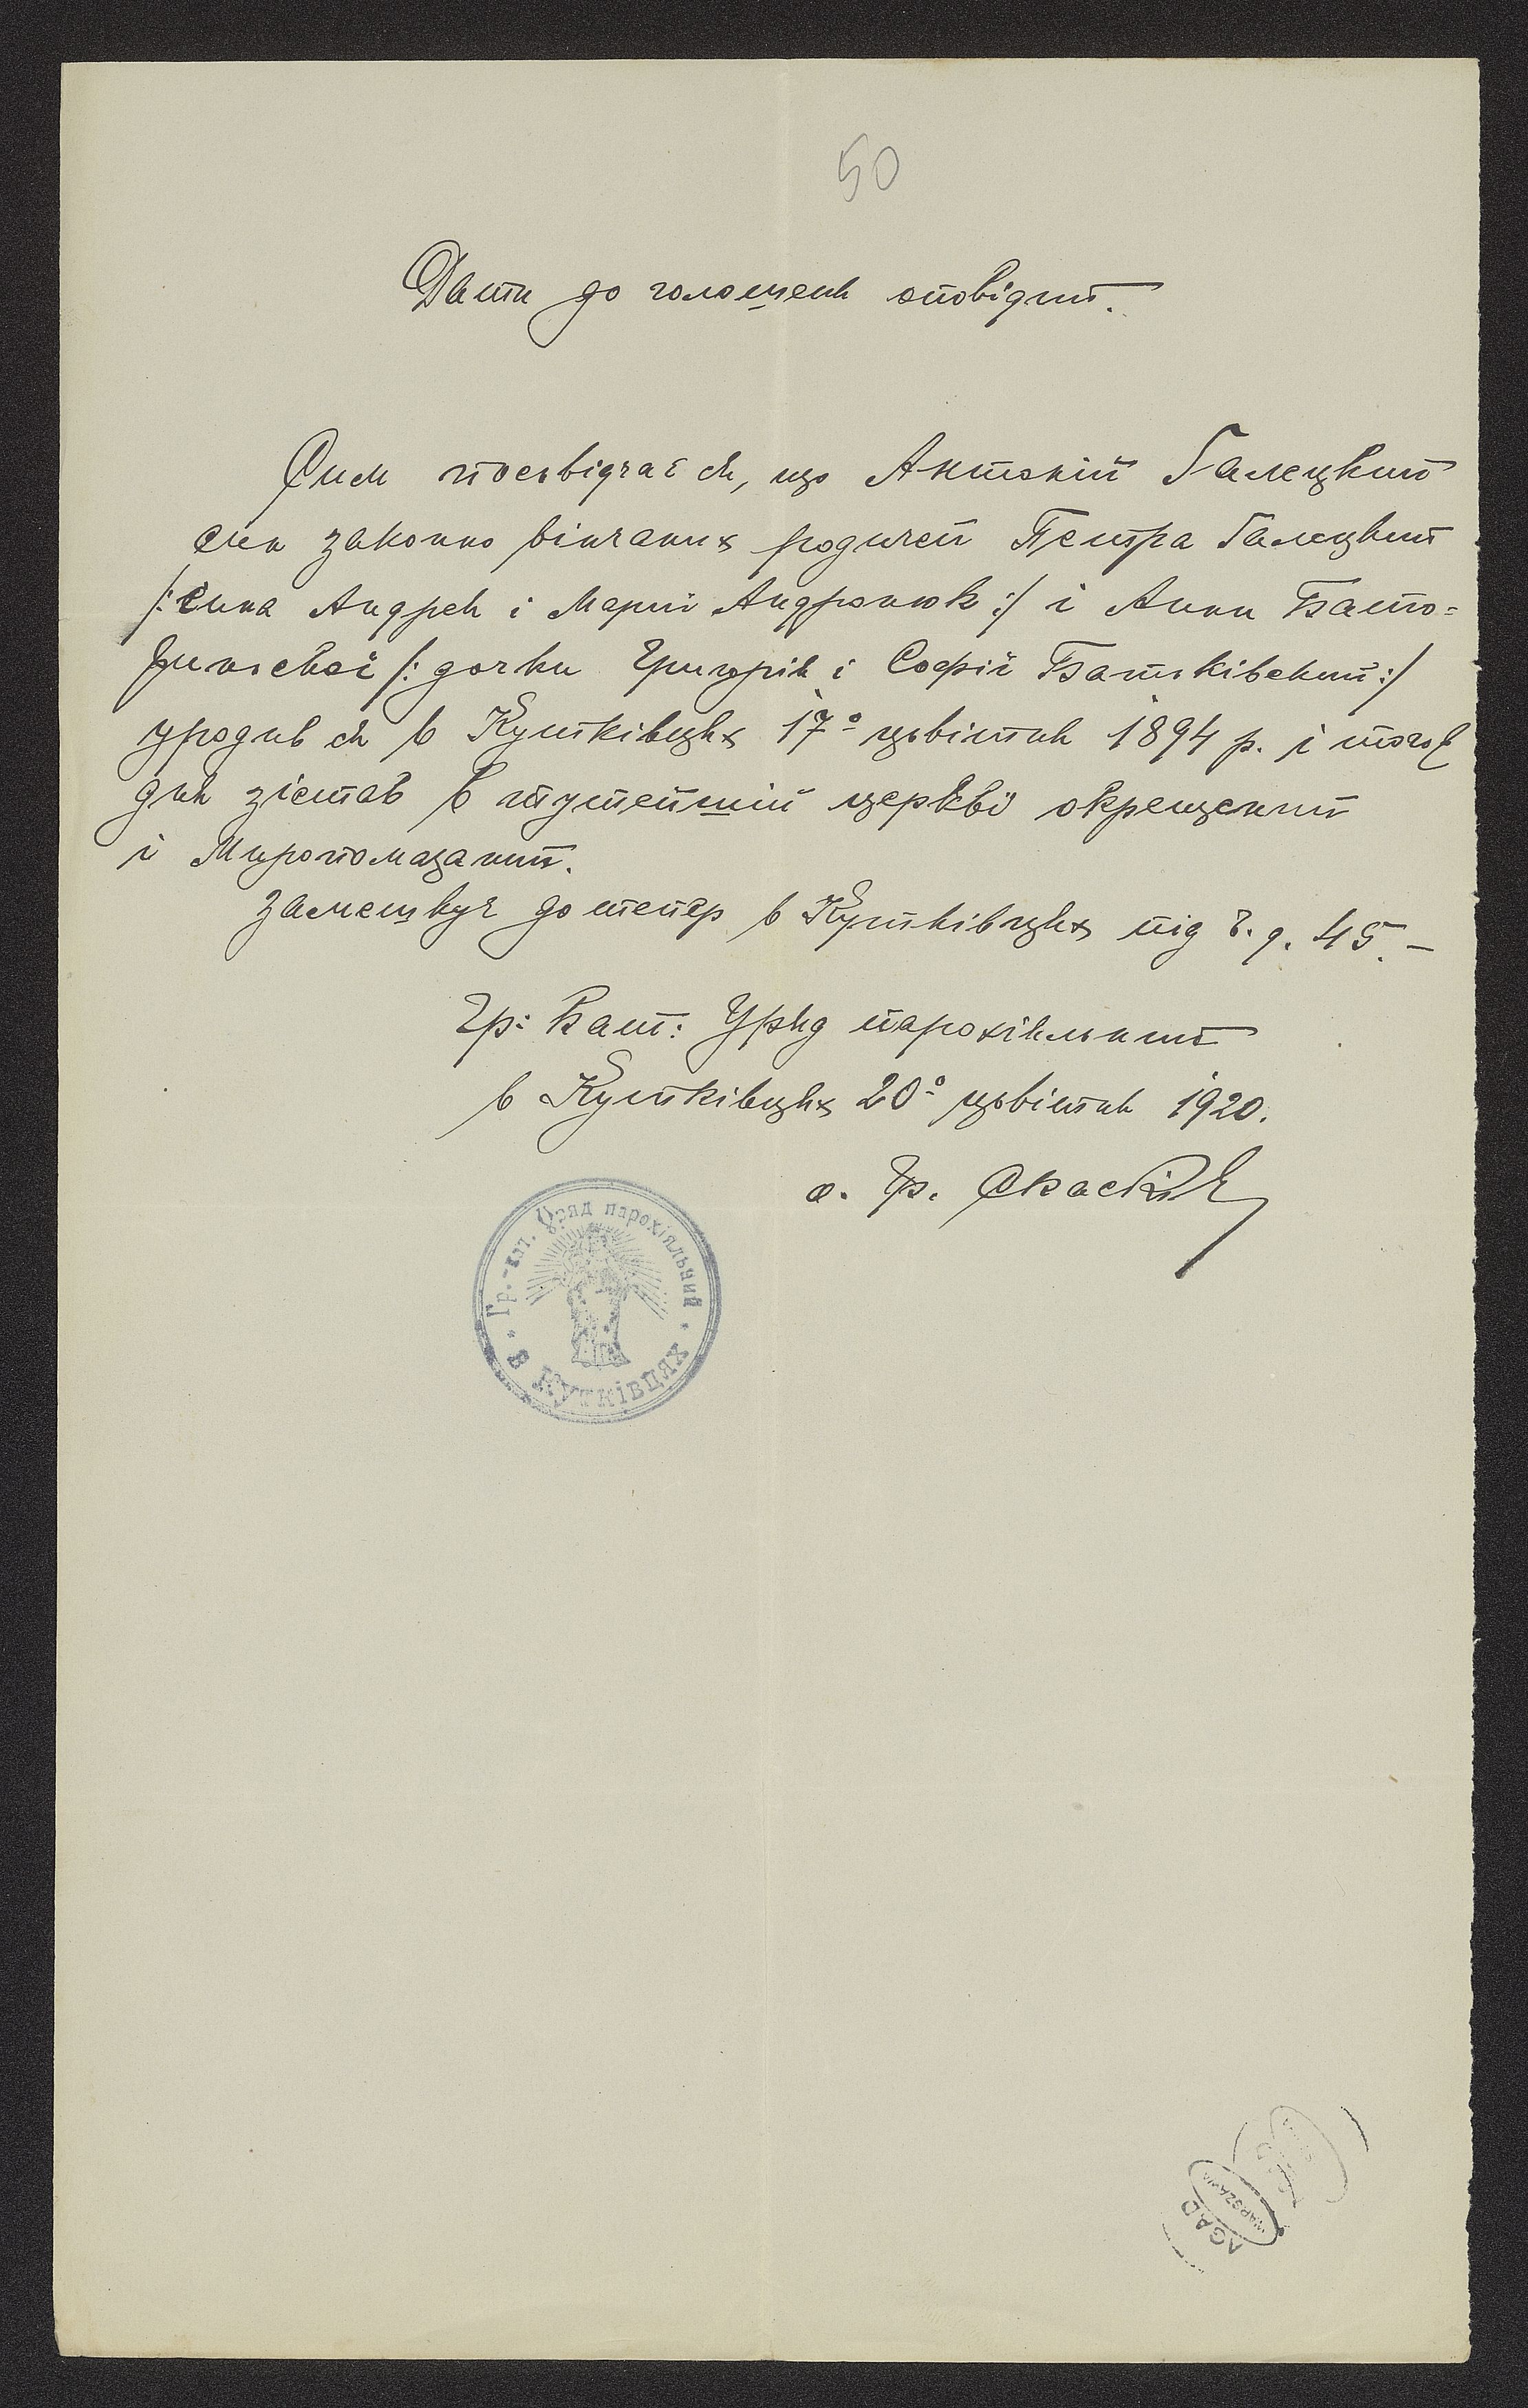 50
Дати доголошень оповідий.
Сим посьвідчає ся, що Антоній Галецкий
син законно вінчаних родичей Петра Галецкий
/: сина Андрея і Марії Андронюк :/ і Анни
/: дочки Григорія і Софії Батьківский :/
уродив ся в Кутківцях 17º цьвітня 1894 р. і того ж
дня зістав в тутейшій церкві охрещений
і Миропомазаний.
Замешкує до тепер в Кутківцях під ч. д. 45. –
Гр: Кат: Уряд парохіяльний
в Кутківцях 20º цьвітня 1920.
о. Гр.
Гр.-кат. Уряд парохіяльний
в Кутківцях
AGAD
WARSZAWA